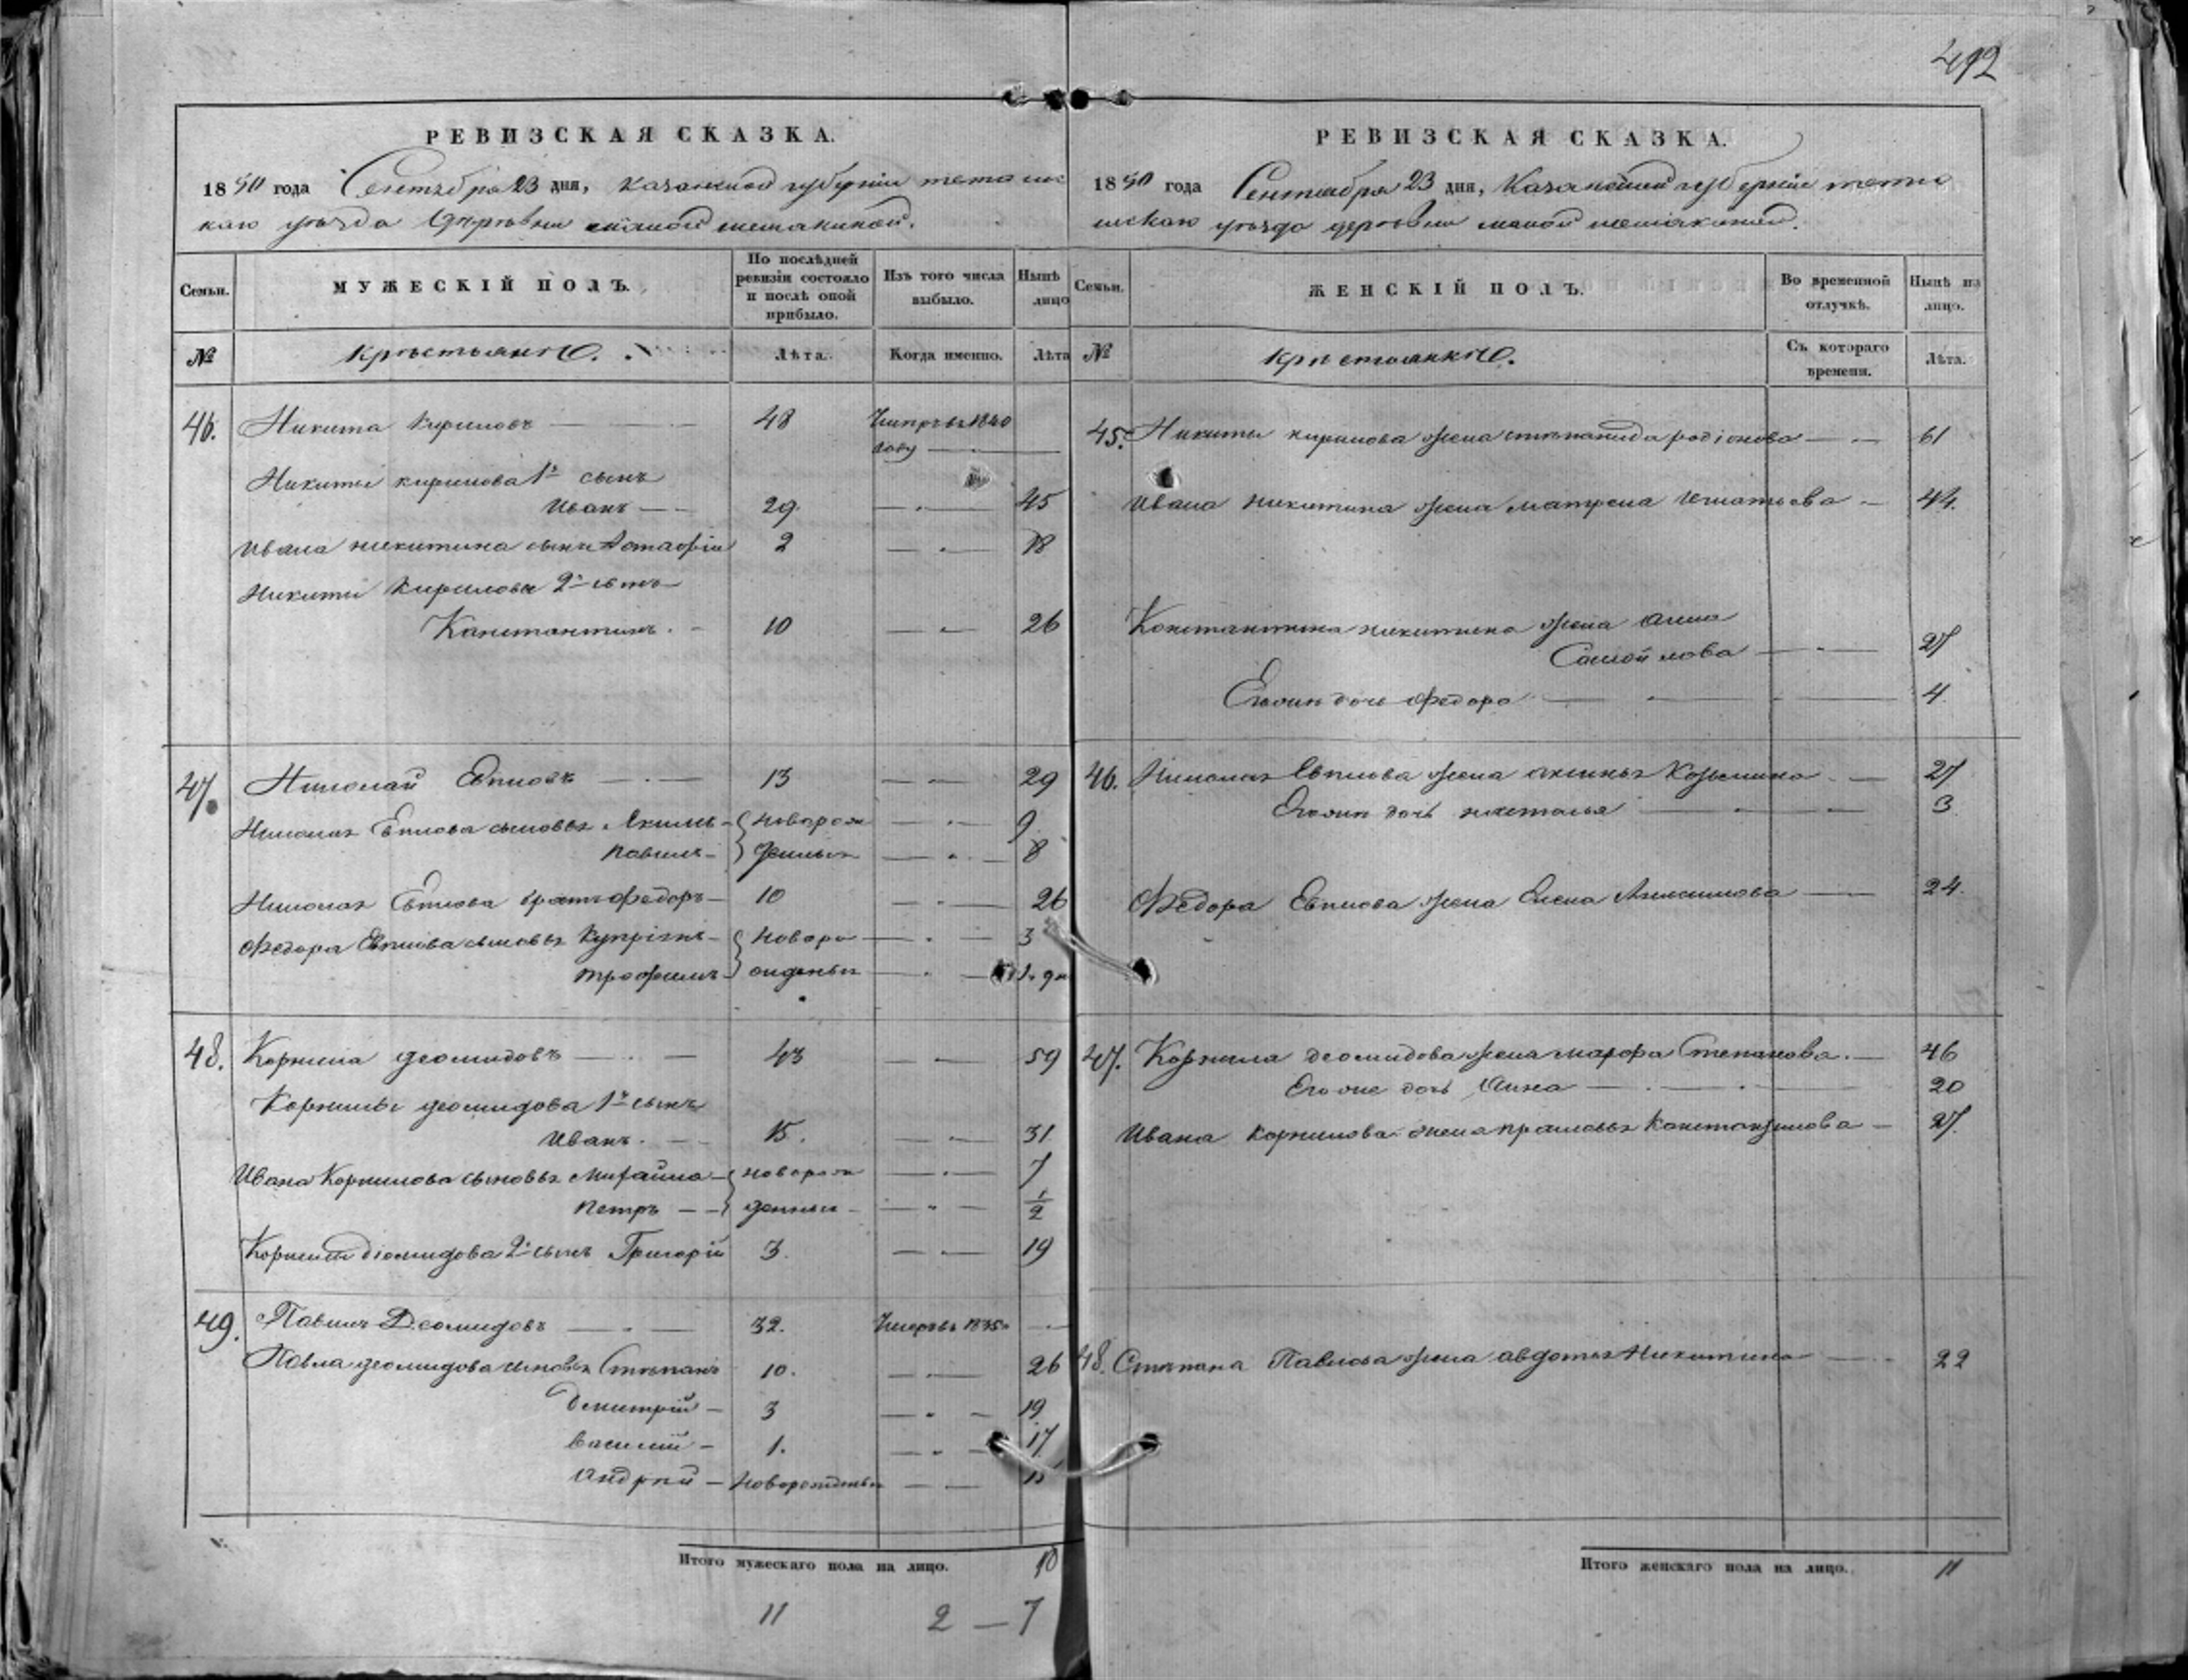 492
РЕВИЗСКАЯ СКАЗКА.
1850 года Сентября 23 дня, Казанской губернiи тетюш
каго уѣзда Деревни малой шемякиной.
Семьи.
МУЖЕСКІЙ ПОЛЪ.
По послѣдней ревизіи состояло и послѣ оной прибыло.
Изъ того числа выбыло.
Нынѣ лицо
№ крѣстьянѣ. Лѣта. Когда именно. Лѣта
46. Никита Кириловъ 48 Умеръ въ 1840
году
Никиты кирилова 1й сынъ
Иванъ 29. 45
Ивана никитина сынъ Астафiй 2 18
Никиты Кирилова 2й сынъ
Канстантинъ. 10 26
47. Николай Евпловъ 13 29
Николая Евплова сыновья Якимъ новорож 9
Павилъ денныя 8
Николая Евплова братъ Федоръ 10 26
Федора Евплова сыновья новоро 3
трофимъ
48. Корнила деомидовъ 43 59
Корнилы деомидова 1й сынъ
Иванъ. 15. 31
Ивана Корнилова сыновья Михайла новорож 7
петръ денныя 1/2
Корнилы Диомидова 2й сынъ Григорiй 3. 19
49. Павилъ Деомидовъ 32. Умеръ въ 1835
Павла деомидова сыновья Стѣпанъ 10. 26
Дмитрiй 3 19
Василiй 1. 17
Андрѣй Новорожденны 15
Итого мужескаго пола на лицо.
11 2 — 7
РЕВИЗСКАЯ СКАЗКА.
1850 года Сентября 23 дня, Казанской губернiи тетю
шскаго уѣзда деревни малой шемякиной.
Семьи.
ЖЕНСКІЙ ПОЛЪ.
Во временной отлучкѣ.
Нынѣ на лицо.
№ Крѣстьянкѣ. Съ котораго времени. Лѣта.
45. Никиты кирилова жена стѣпанида родiонова 61
Ивана никитина жена матрена Игнатьева 44.
Констанктина никитина жена анна
Самойлова 27
Егожъ дочь Федора 4
46. Николая Евплова жена аксинья Козьмина 27
Егожъ дочь наталья 3
Федора Евплова жена Елена 24.
47. Корнила деомидова жена марфа Степанова. 46
Егоже дочь Анна 20
Ивана Корнилова жена прасковья Константинова 27.
48. Стѣпана Павлова жена авдотья Никитина 22
Итого женскаго пола на лицо. 11